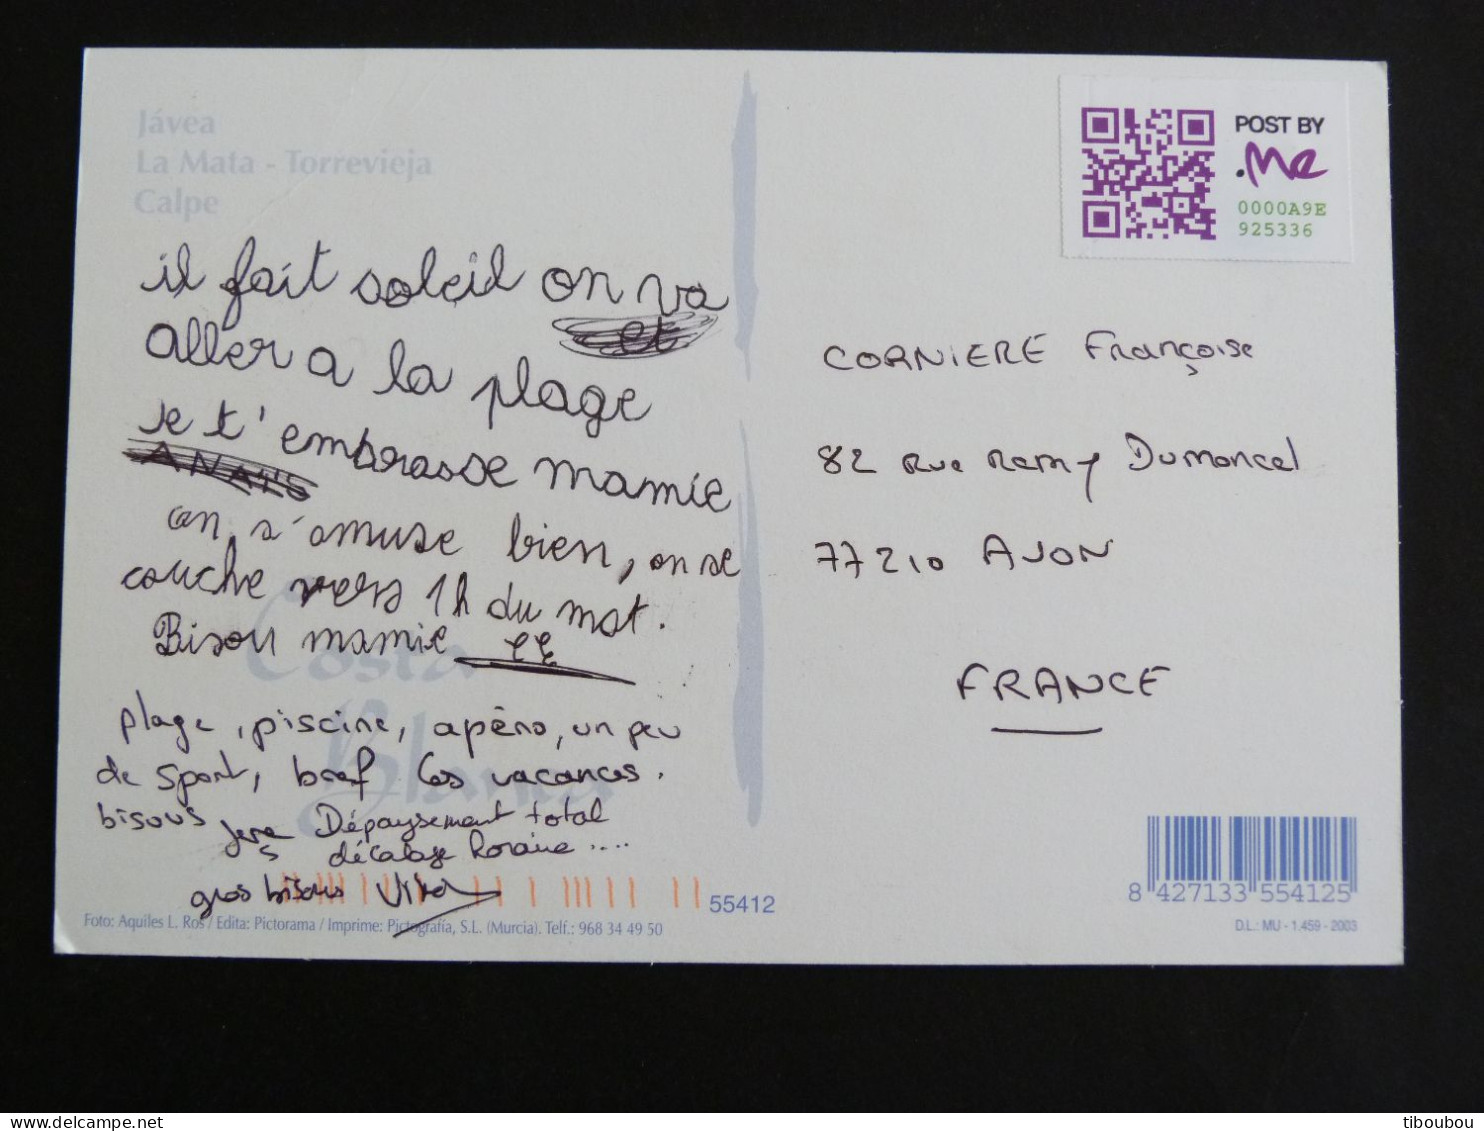 Jávea
La Mata - Torrevieja
Calpe
il fait soleil on va
et
aller a la plage
je t'embrasse mamie
ANAÏS
on s'amuse bien, on se
couche vers 1h du mat.
Bisou mamie
plage, piscine, apéro, un peu
de sport, bref les vacances.
bisous
Dépaysement total
décalage horaire ....
gros bisous
Costa
Blanca
55412
Foto: Aquiles L. Ros / Edita: Pictorama / Imprime: Pictografía, S.L. (Murcia). Telf.: 968 34 49 50
POST BY
.Me
0000A9E
925336
CORNIERE Françoise
82 Rue Remy Dumoncel
77210 AVON
FRANCE
8 427133 554125
D.L.: MU - 1.459 - 2003
delcampe.net
tiboubou